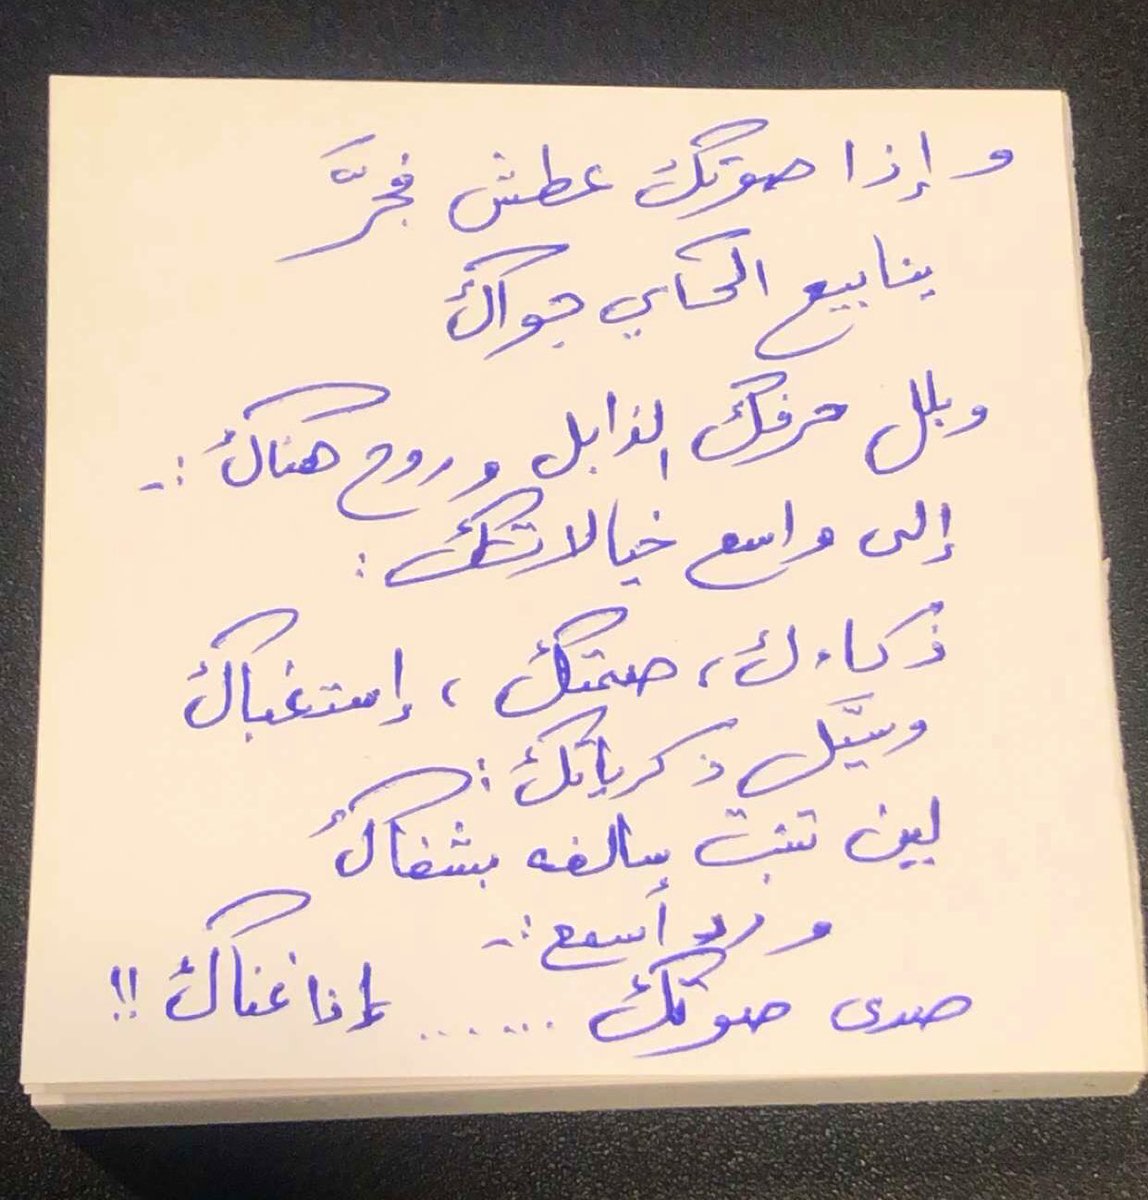 و إذا صوتك عطش فجَّر
ينابيع الحكاي جواك
وبلل حرفك الذابل وروح هناك :-
إلى واسع خيالاتك :
ذكاءك ، صمتك ، إستغباك
وسيَّل ذكرياتك :
لين تنبت سالفه بشفاك
ورد أسمع :-
صدى صوتك ...... إذا غناك !!